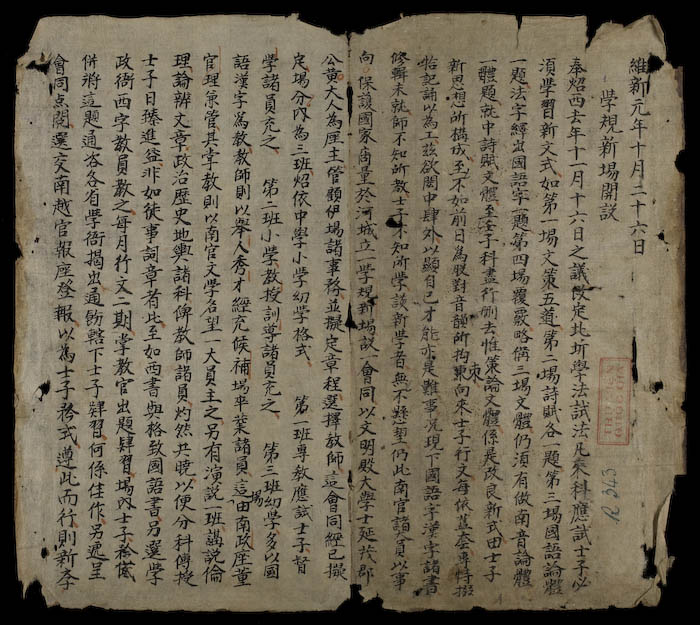 維新元年十月二十六日
學規新場開說
奉炤西去年十一月十六日之議復定北圻學法試法凡來科應試士子必
須學習新文式如第一場文策五道第二場詩賦各一題第三場國語論體
一題法字繹出國語字一題第四場覆覈略備三場文體仍須有做南音論體
一體題就中詩賦文體至壬子科盡行删去惟策論文體係是改良新式由士子
新思想所構成至不如前日為股對音韻所拘束向來士子行文每依蓋套專特掇
怡記誦以為工故欲閎中肆外以顯自己才能亦是難事况現下國語字漢字諸書
修輯未就師不知所教士子未知所學談新學者無不懸望仍此南官諸員以事
向保護國家商量於河城立一學規新場說一會同以文明殿大學士延茂郡
公黄大人為座主管顧伊場諸事務並擬定章程選擇教師這會同經已擬
定場分內為三班炤依中學小學幼學格式 第一班專教應試士子督
學諸員充之 第二班小學教授訓導諸員充之 第三班幼學多以國
語漢字為教教師則以舉人秀才經充候補場卒業諸員這場由南政座董
官理兼管其掌教則以南官文學名望一大員主之另有演說一班講說倫
理論辨文章政治歷史地輿諸科俾教師諸員灼然共曉以便分科傳授
士子日臻進益非如徒事詞章者比至如西書與格致國語書另選學
政衙西字教員教之每月行文二期掌教官出題肄習場內士子矜
併將這題通咨各省學衙揭出通飭轄下士子肄習何係佳作另遞呈
會同点閱選交南越官報座登報以為士子矜式遵此而行則新學
R 343